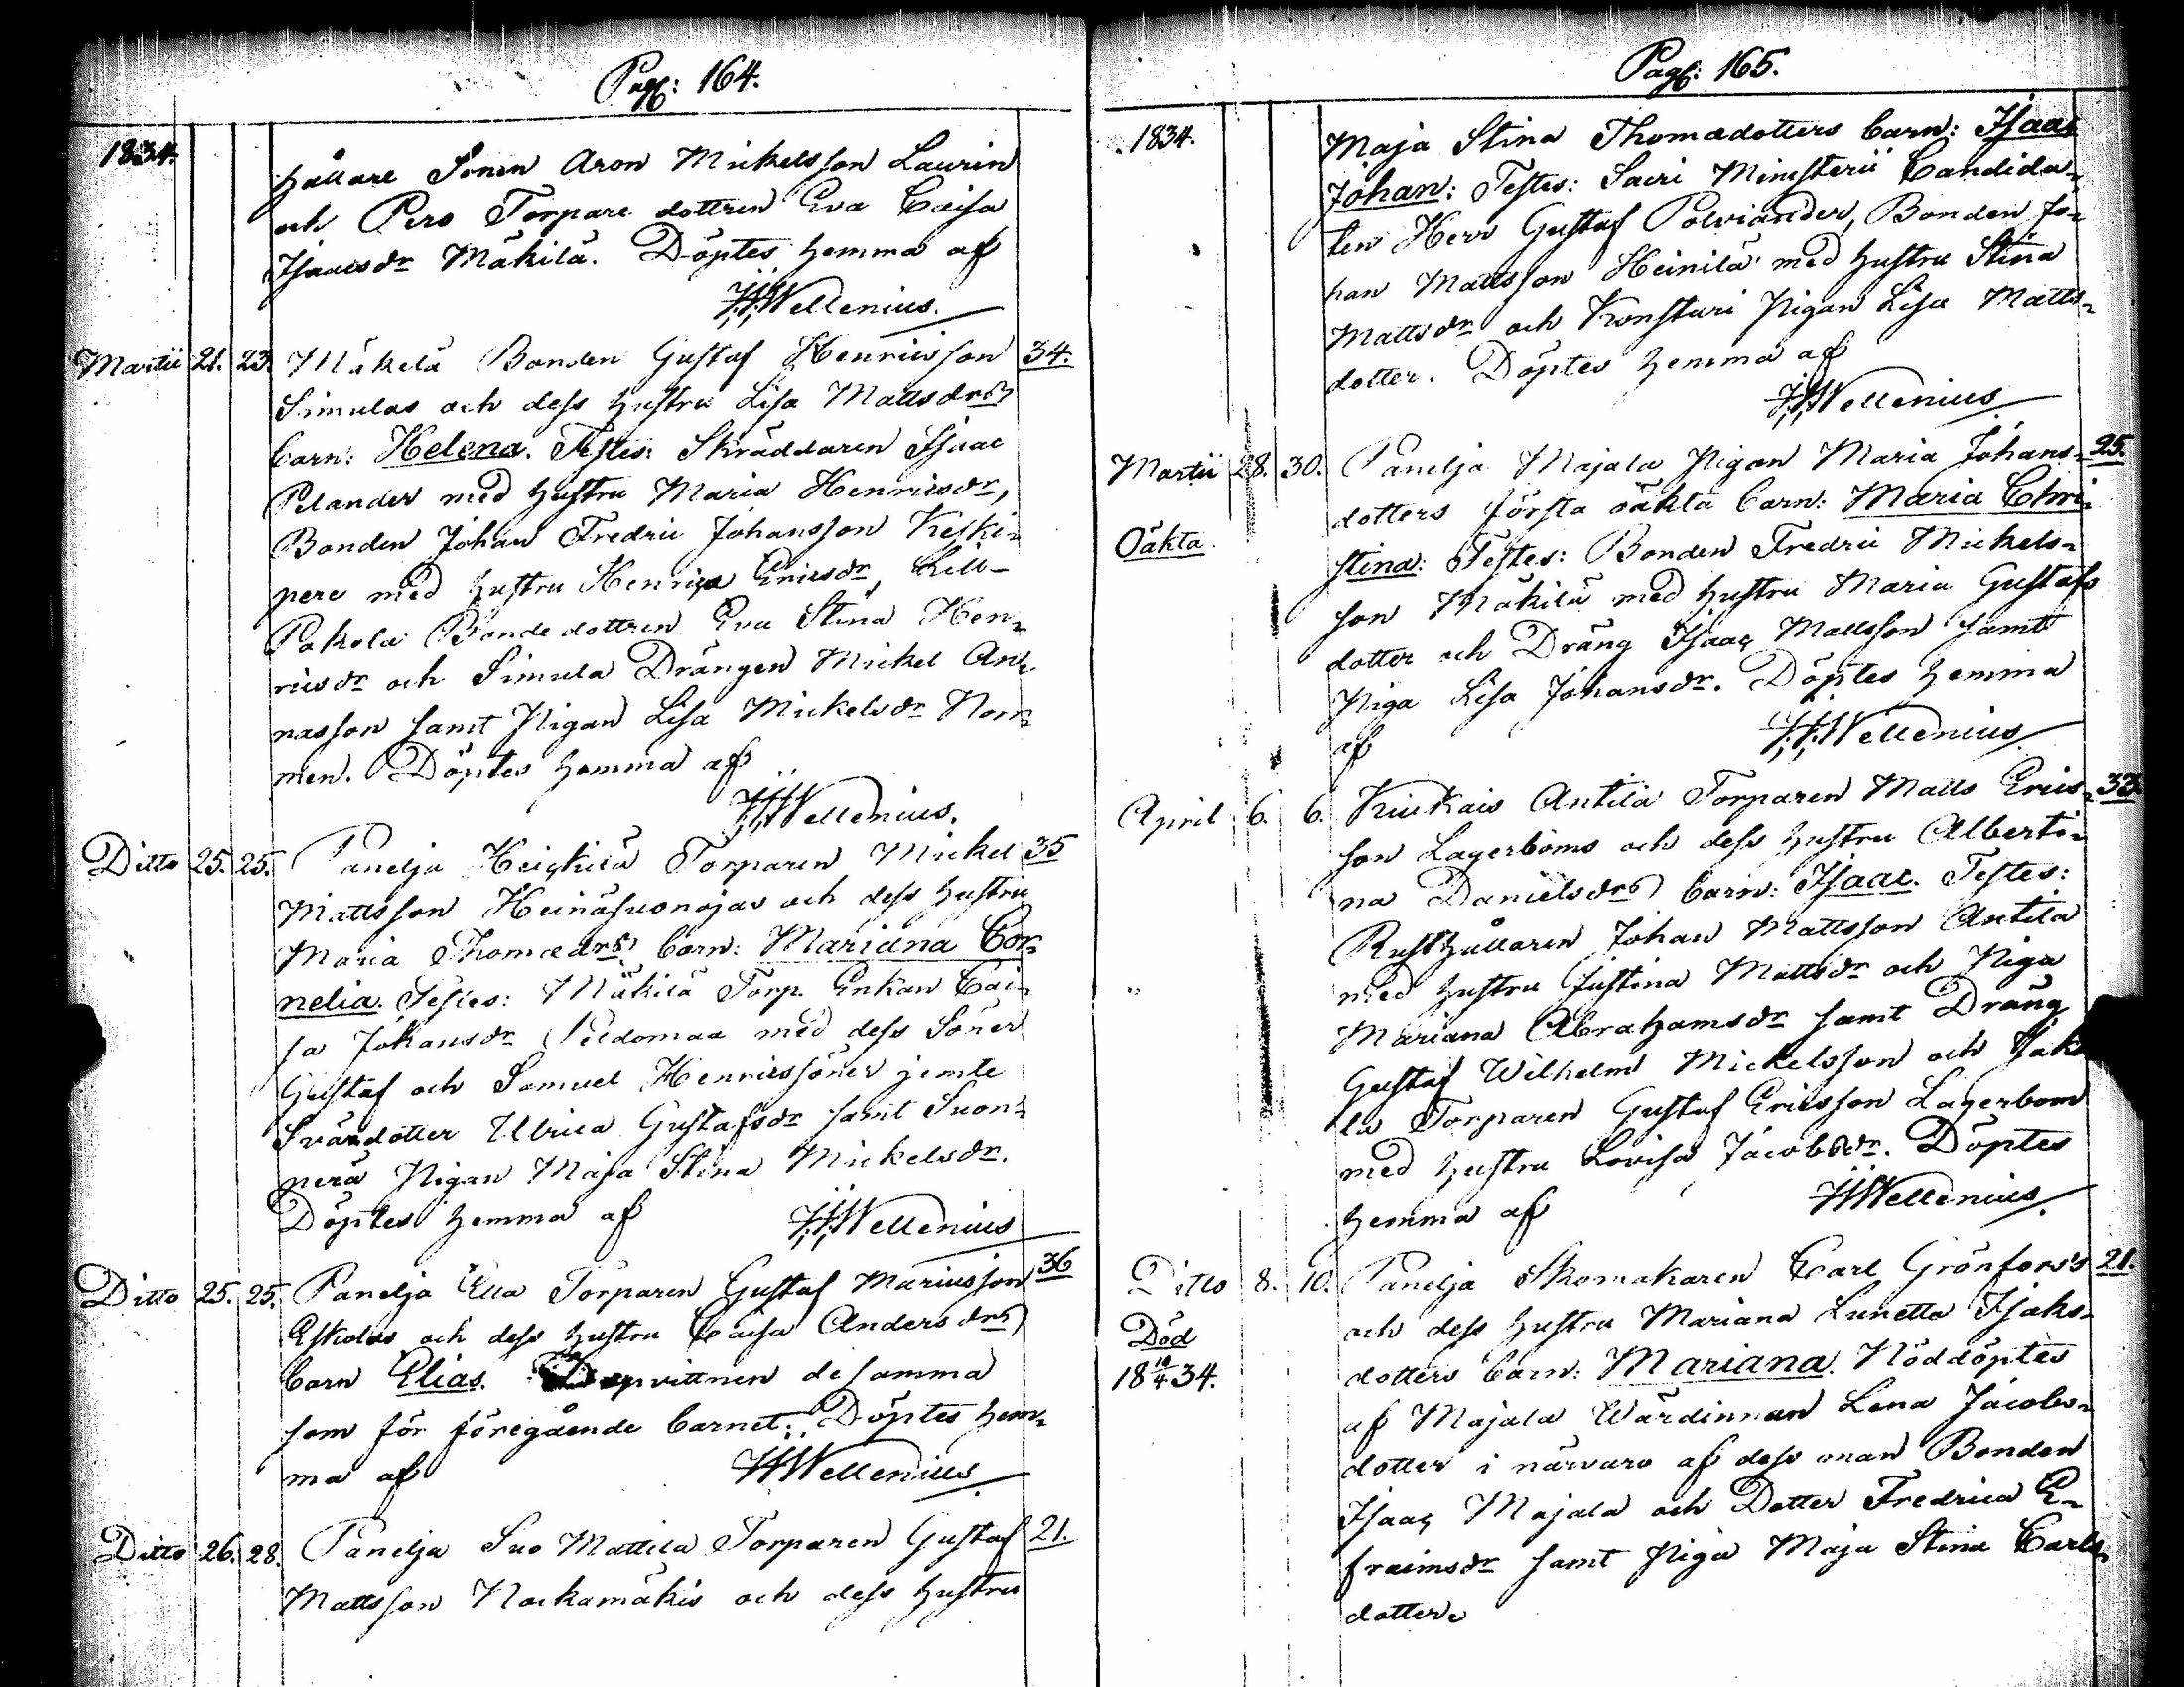 Pag: 164.
1834.
hållare Sonen Aron Mickelsson Laurin
och Pero Torpare dottren Eva Caisa
Isaacsdr Mäkilä. Döptes hemma af
J.J. Wellenius.
Martii 21. 23. Mäkelä Bonden Gustaf Henricsson 34.
Simulas och dess hustru Lisa Mattsdrs
barn: Helena. Testes: Skräddaren Isaac
Pelander med hustru Maria Henricsdr,
Bonden Johan Fredric Johansson Keski-
pere med hustru Henrica Ericsdr, Lill-
Pakola Bonde dottren Eva Stina Hen-
ricsdr och Simula Drängen Mickel An-
nasson samt Pigan Lisa Mickelsdr Norr-
men. Döptes hemma af
J.J. Wellenius.
Ditto 25. 25. Panelja Heickilä Torparen Mickel 35
Mattsson Heinäsuonojas och dess hustru
Maria Thomædrs barn: Mariana Cor-
nelia. Testes: Mäkilä Torp. Enkan Cai-
sa Johansdr Peldomaa med dess Söner
Gustaf och Samuel Henricssöner jemte
Svärdotter Ulrica Gustafsdr samt Suon-
perä Pigan Maja Stina Mickelsdr.
Döptes hemma af J.J. Wellenius
Ditto 25. 25. Panelja Ella Torparen Gustaf Mariusson 36
Eskolas och dess hustru Caisa Andersdrs
barn Elias. Dopvittnen desamma
som för föregående barnet. Döptes hem-
ma af J.J. Wellenius
Ditto 26. 28. Panelja Suo Mattila Torparen Gustaf 21.
Mattsson Nockamäkis och dess hustru
Pag: 165.
1834.
Maja Stina Thomædotters barn: Isaac
Johan: Testes: Sacri Ministerii Candida-
ten Herr Gustaf Polviander, Bonden Jo-
han Mattsson Heinilä med hustru Stina
Mattsdr och Konsturi Pigan Lisa Matts-
dotter. Döptes hemma af
J.J. Wellenius
Martii 28. 30. Panelja Majala Pigan Maria Johans- 25.
dotters första oäkta barn: Maria Chri-
Oäkta.
stina: Testes: Bonden Fredric Mickels-
son Mäkilä med hustru Maria Gustafs
dotter och Dräng Isaac Mattsson samt
Piga Lisa Johansdr. Döptes hemma
af J.J. Wellenius
April 6. 6. Kiukais Antila Torparen Matts Erics- 33
son Lagerboms och dess hustru Alberti-
na Danielsdrs barn: Isaac. Testes:
Rusthållaren Johan Mattsson Antila
med hustru Justina Mattsdr och Piga
Mariana Abrahamsdr samt Dräng
Gustaf Wilhelm Mickelsson och
la Torparen Gustaf Ericsson Lagerbom
med hustru Lovisa Jacobsdr. Döptes
hemma af J.J. Wellenius
Ditto 8. 10. Panelja Skomakaren Carl Grönfors's 21.
och dess hustru Mariana Lunetta Isaks-
Död
dotters barn: Mariana. Nöddöptes
18 10/4 34.
af Majala Wärdinnan Lena Jacobs-
dotter i närvaro af dess man Bonden
Isaac Majala och Dotter Fredrica E-
fraimsdr samt Piga Maja Stina Carls-
dotter.